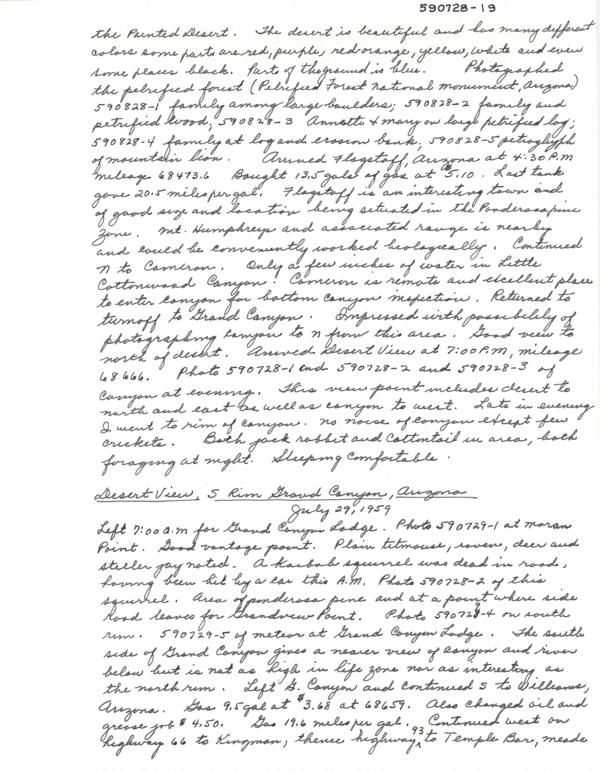 590728-19
the Painted Desert. The desert is beautiful and has many different
colors some parts are red, purple, red-orange, yellow, white and even
some places black. Part of the ground is blue. Photographed
the petrified forest (Petrified Forest National monument, Arizona)
590828-1 family among large boulders; 590828-2 family and
petrified wood; 590828-3 Annette & mary on large petrified log;
590828-4 family at log and erosion bank, 590828-5 petroglyph
of mountain lion. Arrived Flagstaff, Arizona at 4:30 P.M
mileage 68473.6 Bought 13.5 gals of gas at $5.10. Last tank
gave 20.5 miles per gal. Flagstaff is an interesting town and
of good size and location being situated in the Ponderosa pine
Zone. mt. Humphreys and associated range is nearby
and could be conveniently worked biologically. Continued
N to Cameron. Only a few inches of water in Little
Cottonwood Canyon. Cameron is remote and excellent place
to enter canyon for bottom canyon inspection. Returned to
turnoff to Grand Canyon. Impressed with possibility of
photographing canyon to N from this area. Good view to
north of desert. Arrived Desert View at 7:00 P.M, mileage
68666. Photo 590728-1 and 590728-2 and 590728-3 of
Canyon at evening. This view point includes desert to
north and east as well as canyon to west. Late in evening
I went to rim of canyon. no noise of canyon except few
crickets. Both jack rabbit and Cottontail in area, both
foraging at night. Sleeping comfortable.
Desert View, S Rim Grand Canyon, Arizona
July 29, 1959
Left 7:00 a.m for Grand Canyon Lodge. Photo 590729-1 at moran
Point. Good vantage point. Plain titmouse, raven, deer and
steller jay noted. A Kaibab squirrel was dead in road,
having been hit by a car this A.M. Photo 590728-2 of this
squirrel. Area of ponderosa pine and at a point where side
road leaves for Grandview Point. Photo 590729-4 on south
rim. 590729-5 of meteor at Grand Canyon Lodge. The south
side of Grand Canyon gives a nearer view of canyon and river
below but is not as high in life zone nor as interesting as
the north rim. Left G. Canyon and continued S to Williams,
Arizona. Gas 9.5 gal at $3.68 at 68659. Also changed oil and
grease job $4.50. Gas 19.6 miles per gal. Continued west on
highway 66 to Kingman, thence highway 93 to Temple Bar, meade